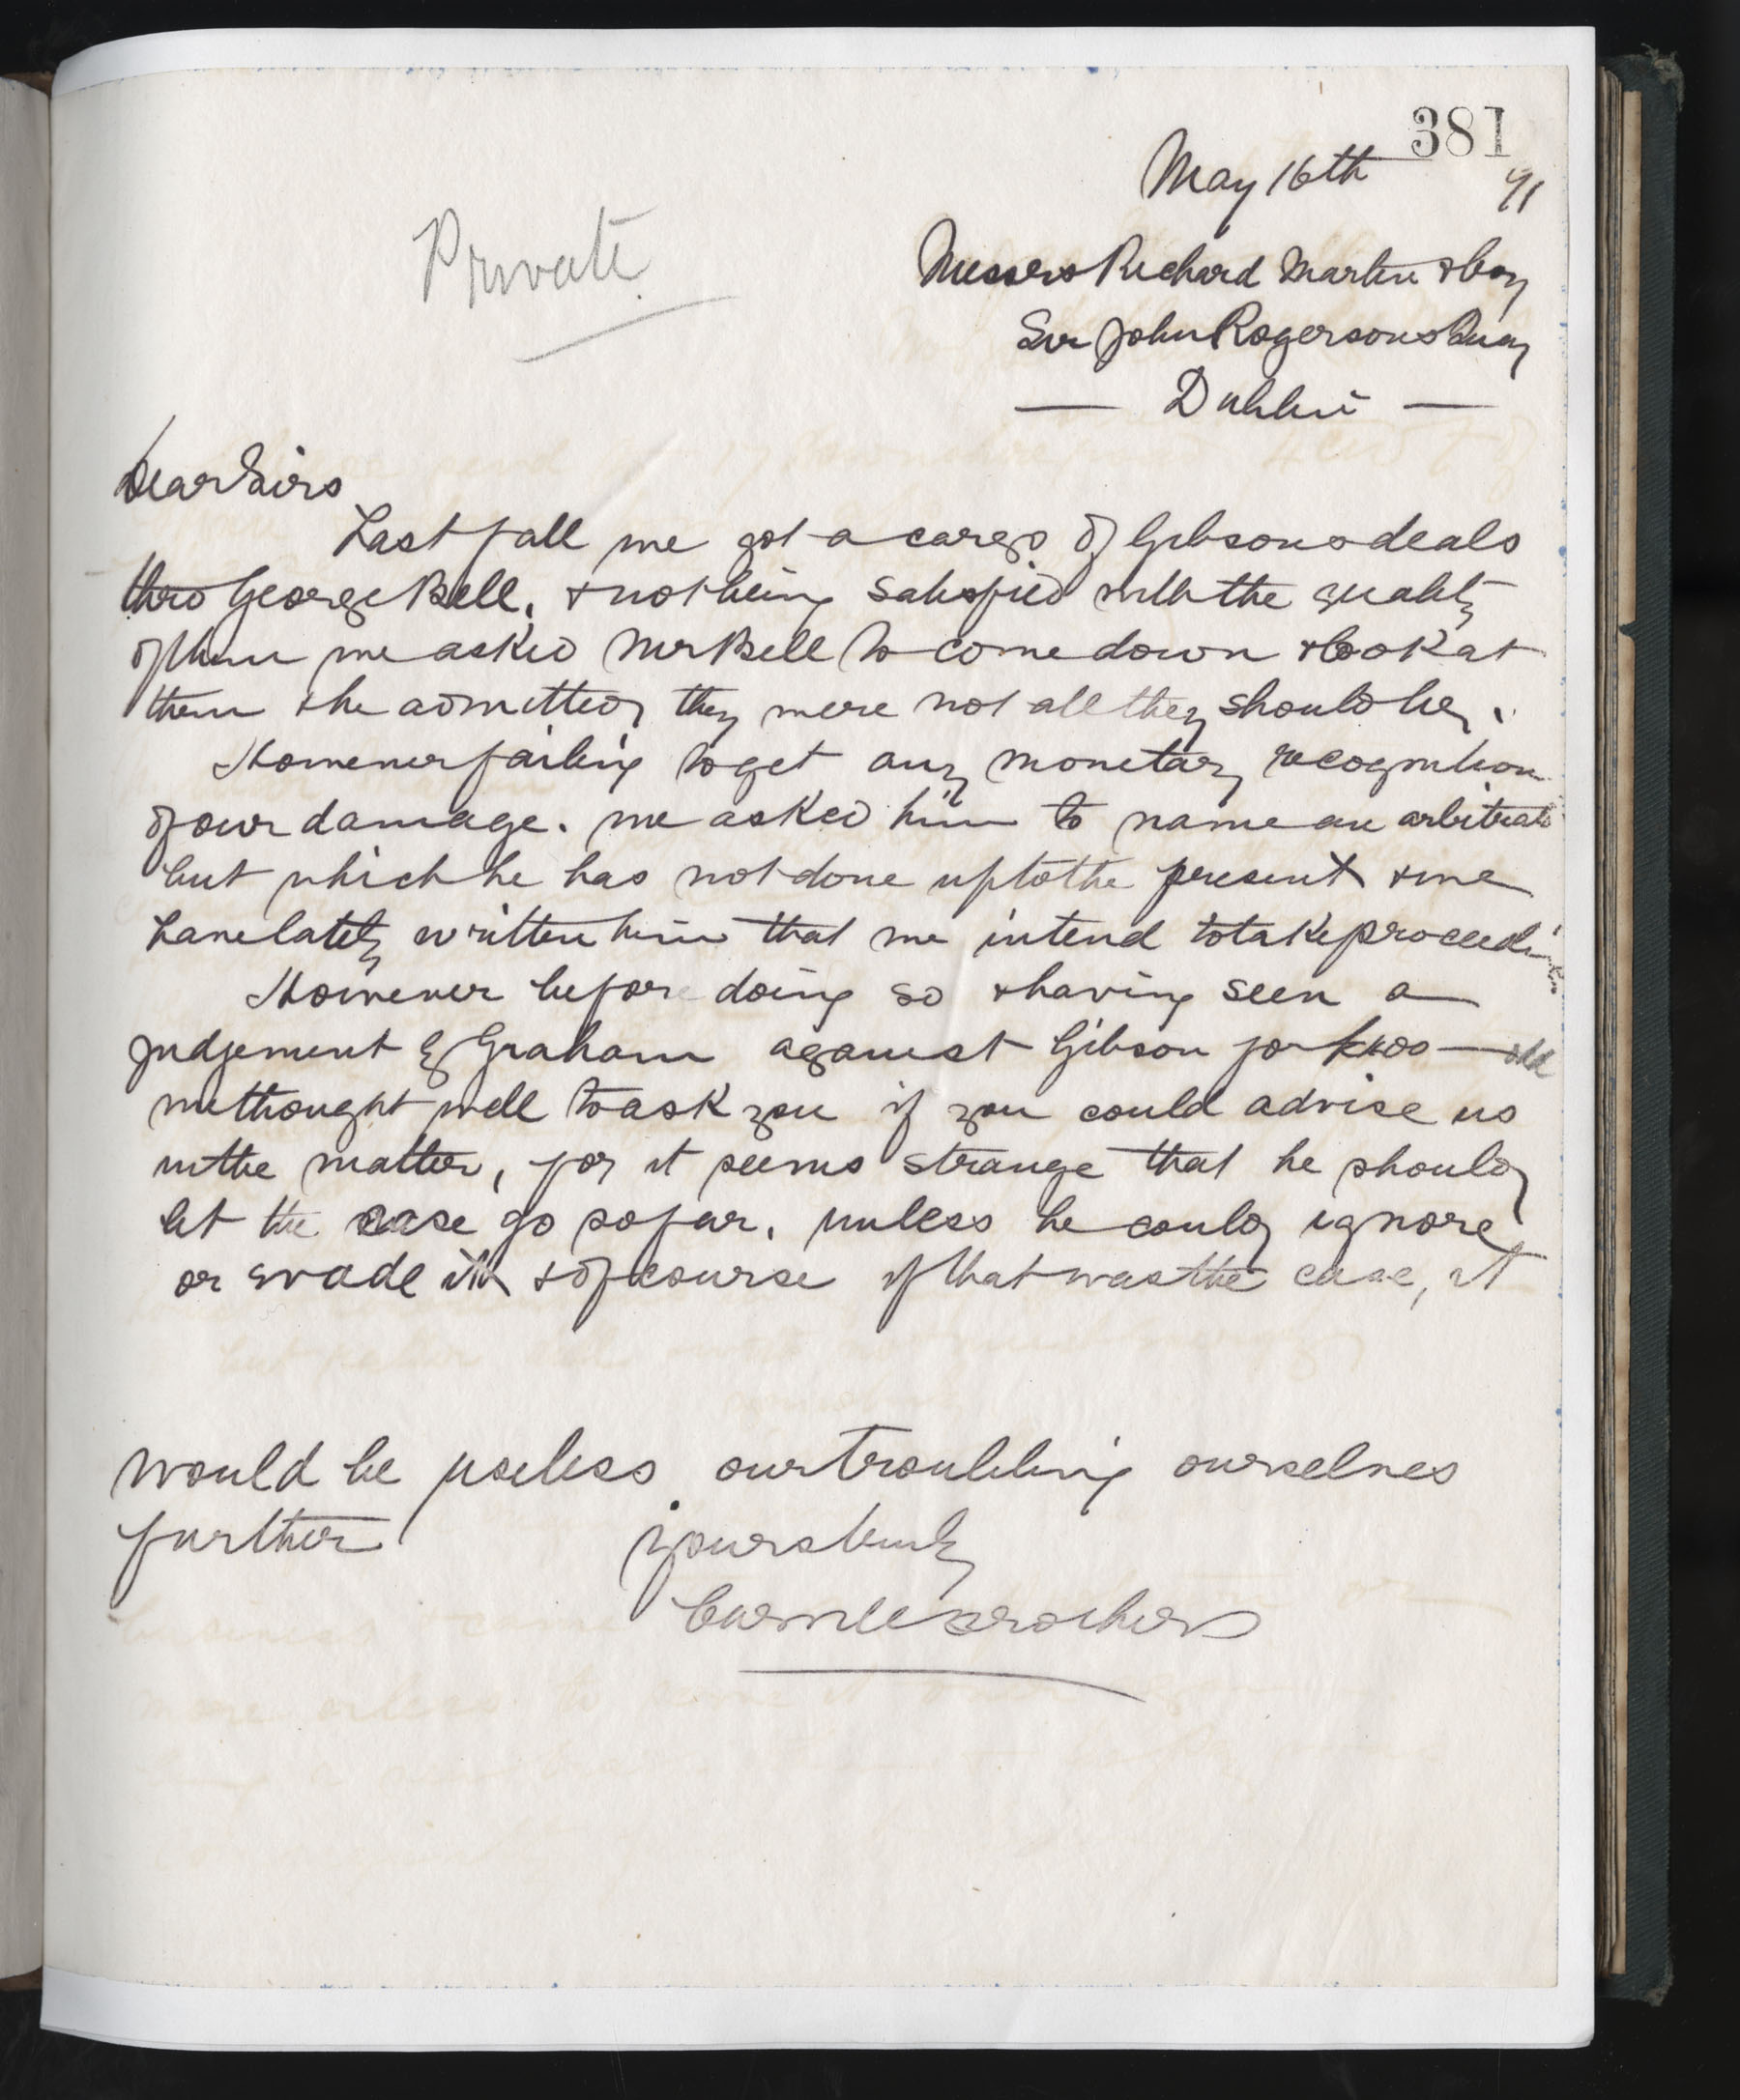 381
May 16th 91
Private
Messrs Richard Martin & Coy
Sir John Rogersons Quay
— Dublin —
Dear Sirs
Last fall we got a cargo of Gibsons deals
thro George Bell, & not being satisfied with the quality
of them we asked Mr Bell to come down & look at
them & he admitted they were not all they should be.
However failing to get any monetary recognition
of our damage. we asked him to name an arbitrator
but which he has not done up to the present & we
have lately written him that we intend to take proceedings
However before doing so & having seen a
judgement by Graham against Gibson for
we thought well to ask you if you could advise us
in the matter, for it seems strange that he should
let the case go so far, unless he could ignore
or evade it & of course if that was the case, it
would be useless our troubling ourselves
further yours truly
Brothers